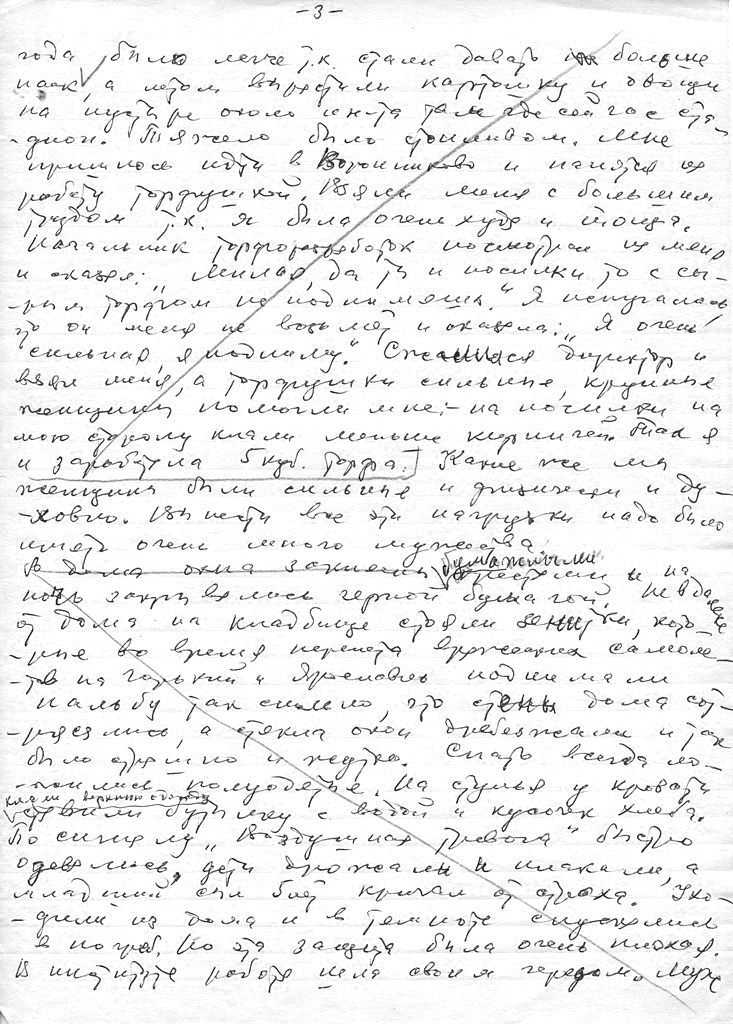 -3-
года было легче т.к. стали давать больше
паек, а летом вырастили картошку и овощи
на пустыре около ин-та там где сейчас ста-
-дион. Тяжело было с топливом. Мне
пришлось идти в Воронниково и наняться на
работу торфушкой. Взяли меня с большим
трудом т.к. я была очень худа и тоща.
Начальник торфоразработок посмотрел на меня
и сказал: „Милая, да ты и носилки то с сы-
-рым торфом не поднимешь." Я испугалась,
что он меня не возьмет и сказала: „Я очень
сильная, я подниму". Сжалился директор и
взял меня, а торфушки сильные, крупные
женщины помогли мне: - на носилки на
мою сторону клали меньше кирпичей. Так я
и заработала 5 куб. торфа.] Какие же мы
женщины были сильные и физически и ду-
-ховно. Вынести все эти нагрузки надо было
иметь очень много мужества
В дома окна заклеены бумажными крестами и на
ночь закрывались черной бумагой. Невдалеке
от дома на кладбище стояли зенитки, кото-
-рые во время перелета вражеских самоле-
-тов на Горький и Ярославль поднимали
пальбу так сильно, что стены дома сот-
-рясались, а стекла окон дребезжали и так
было страшно и жутко. Спать всегда ло-
-жились полуодетые. На стулья у кровати
клали верхнюю одежду
ставили бутылку с водой и кусочек хлеба.
По сигналу „Воздушная тревога" быстро
одевались, дети дрожали и плакали, а
младший сын был кричал от страха. Ухо-
-дили из дома и в темноте спускались
в погреб. Но эта защита была очень плохая.
В институте работа шла своим чередом. Муж